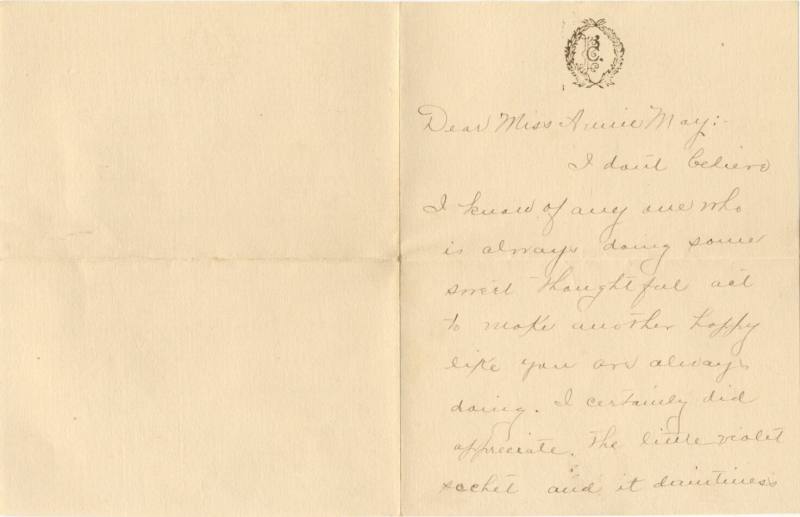 Dear Miss Annie May:-
I don't believe
I know of any one who
is always doing some
sweet thoughtful act
to make another happy
like you are always
doing. I certainly did
appreciate. the little violet
sachet and it daintiness